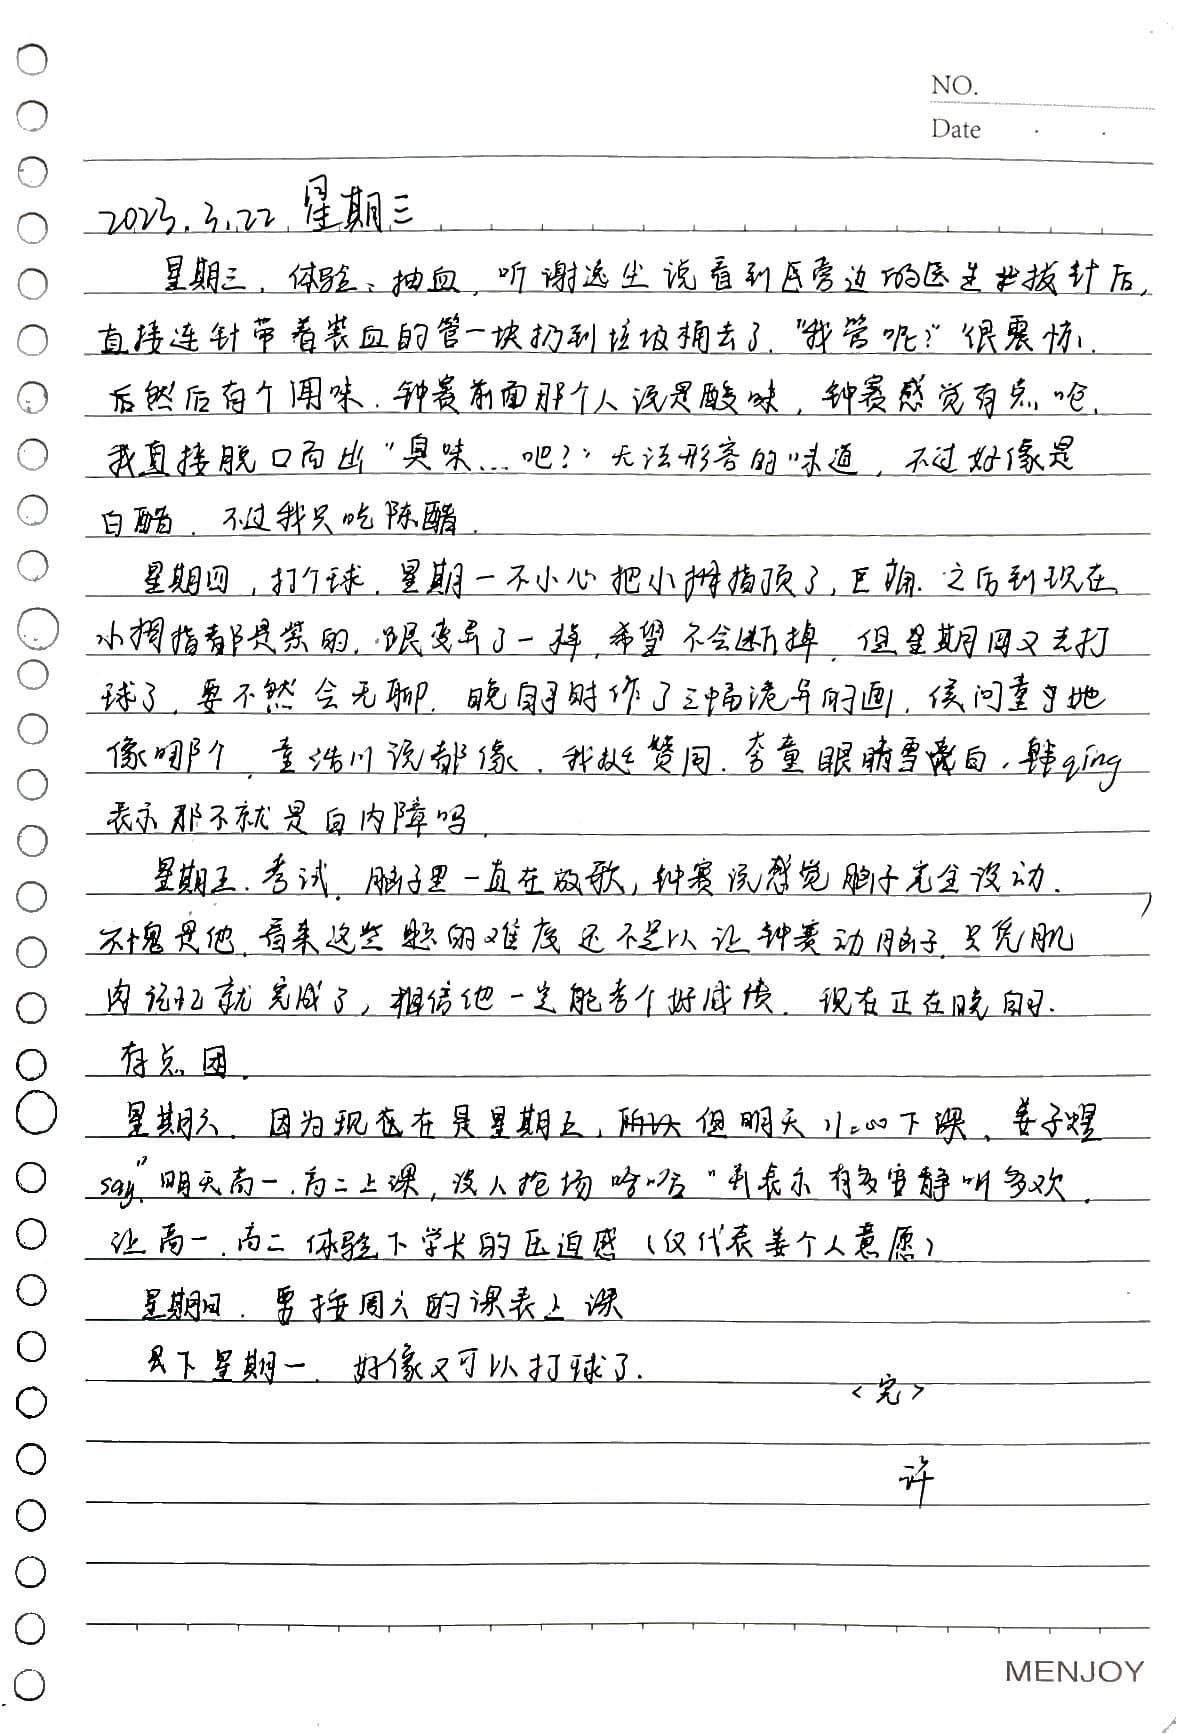 NO.
Date
2023.3.22 星期三
星期三，体验、抽血，听谢逸尘说看到旁边的医生拔针后，
直接连针带着装血的管一块扔到垃圾桶去了."我管呢?"很震惊.
后然后有个闻味.钟赛前面那个人说是酸味，钟赛感觉有点呛.
我直接脱口而出"臭味...吧?"无法形容的味道，不过好像是
白醋.不过我只吃陈醋.
星期四，打个球.星期一不小心把小拇指顶了，巨痛.之后到现在
小拇指都是紫的.跟变异了一样，希望不会断掉.但星期四又去打
球了.要不然会无聊.晚自习时作了三幅诡异的画，侯问童
像哪个.童浩川说都像.我赞同.李童眼睛雪白，韩qing
表示那不就是白内障吗.
星期五.考试.脑子里一直在放歌，钟赛说感觉脑子完全没动.
不愧是他.看来这些题的难度还不足以让钟赛动脑子.只凭肌
肉记忆就完成了，相信他一定能考个好成绩.现在正在晚自习.
有点困.
星期六.因为现在是星期五，所以但明天11:00下课、姜子煜
say:"明天高一.高二上课，没人抢场哈哈"表示有多安静叫多欢.
让高一.高二体验下学长的压迫感（仅代表姜个人意愿）
星期日.要按周六的课表上课
下星期一.好像又可以打球了.
<完>
许
MENJOY